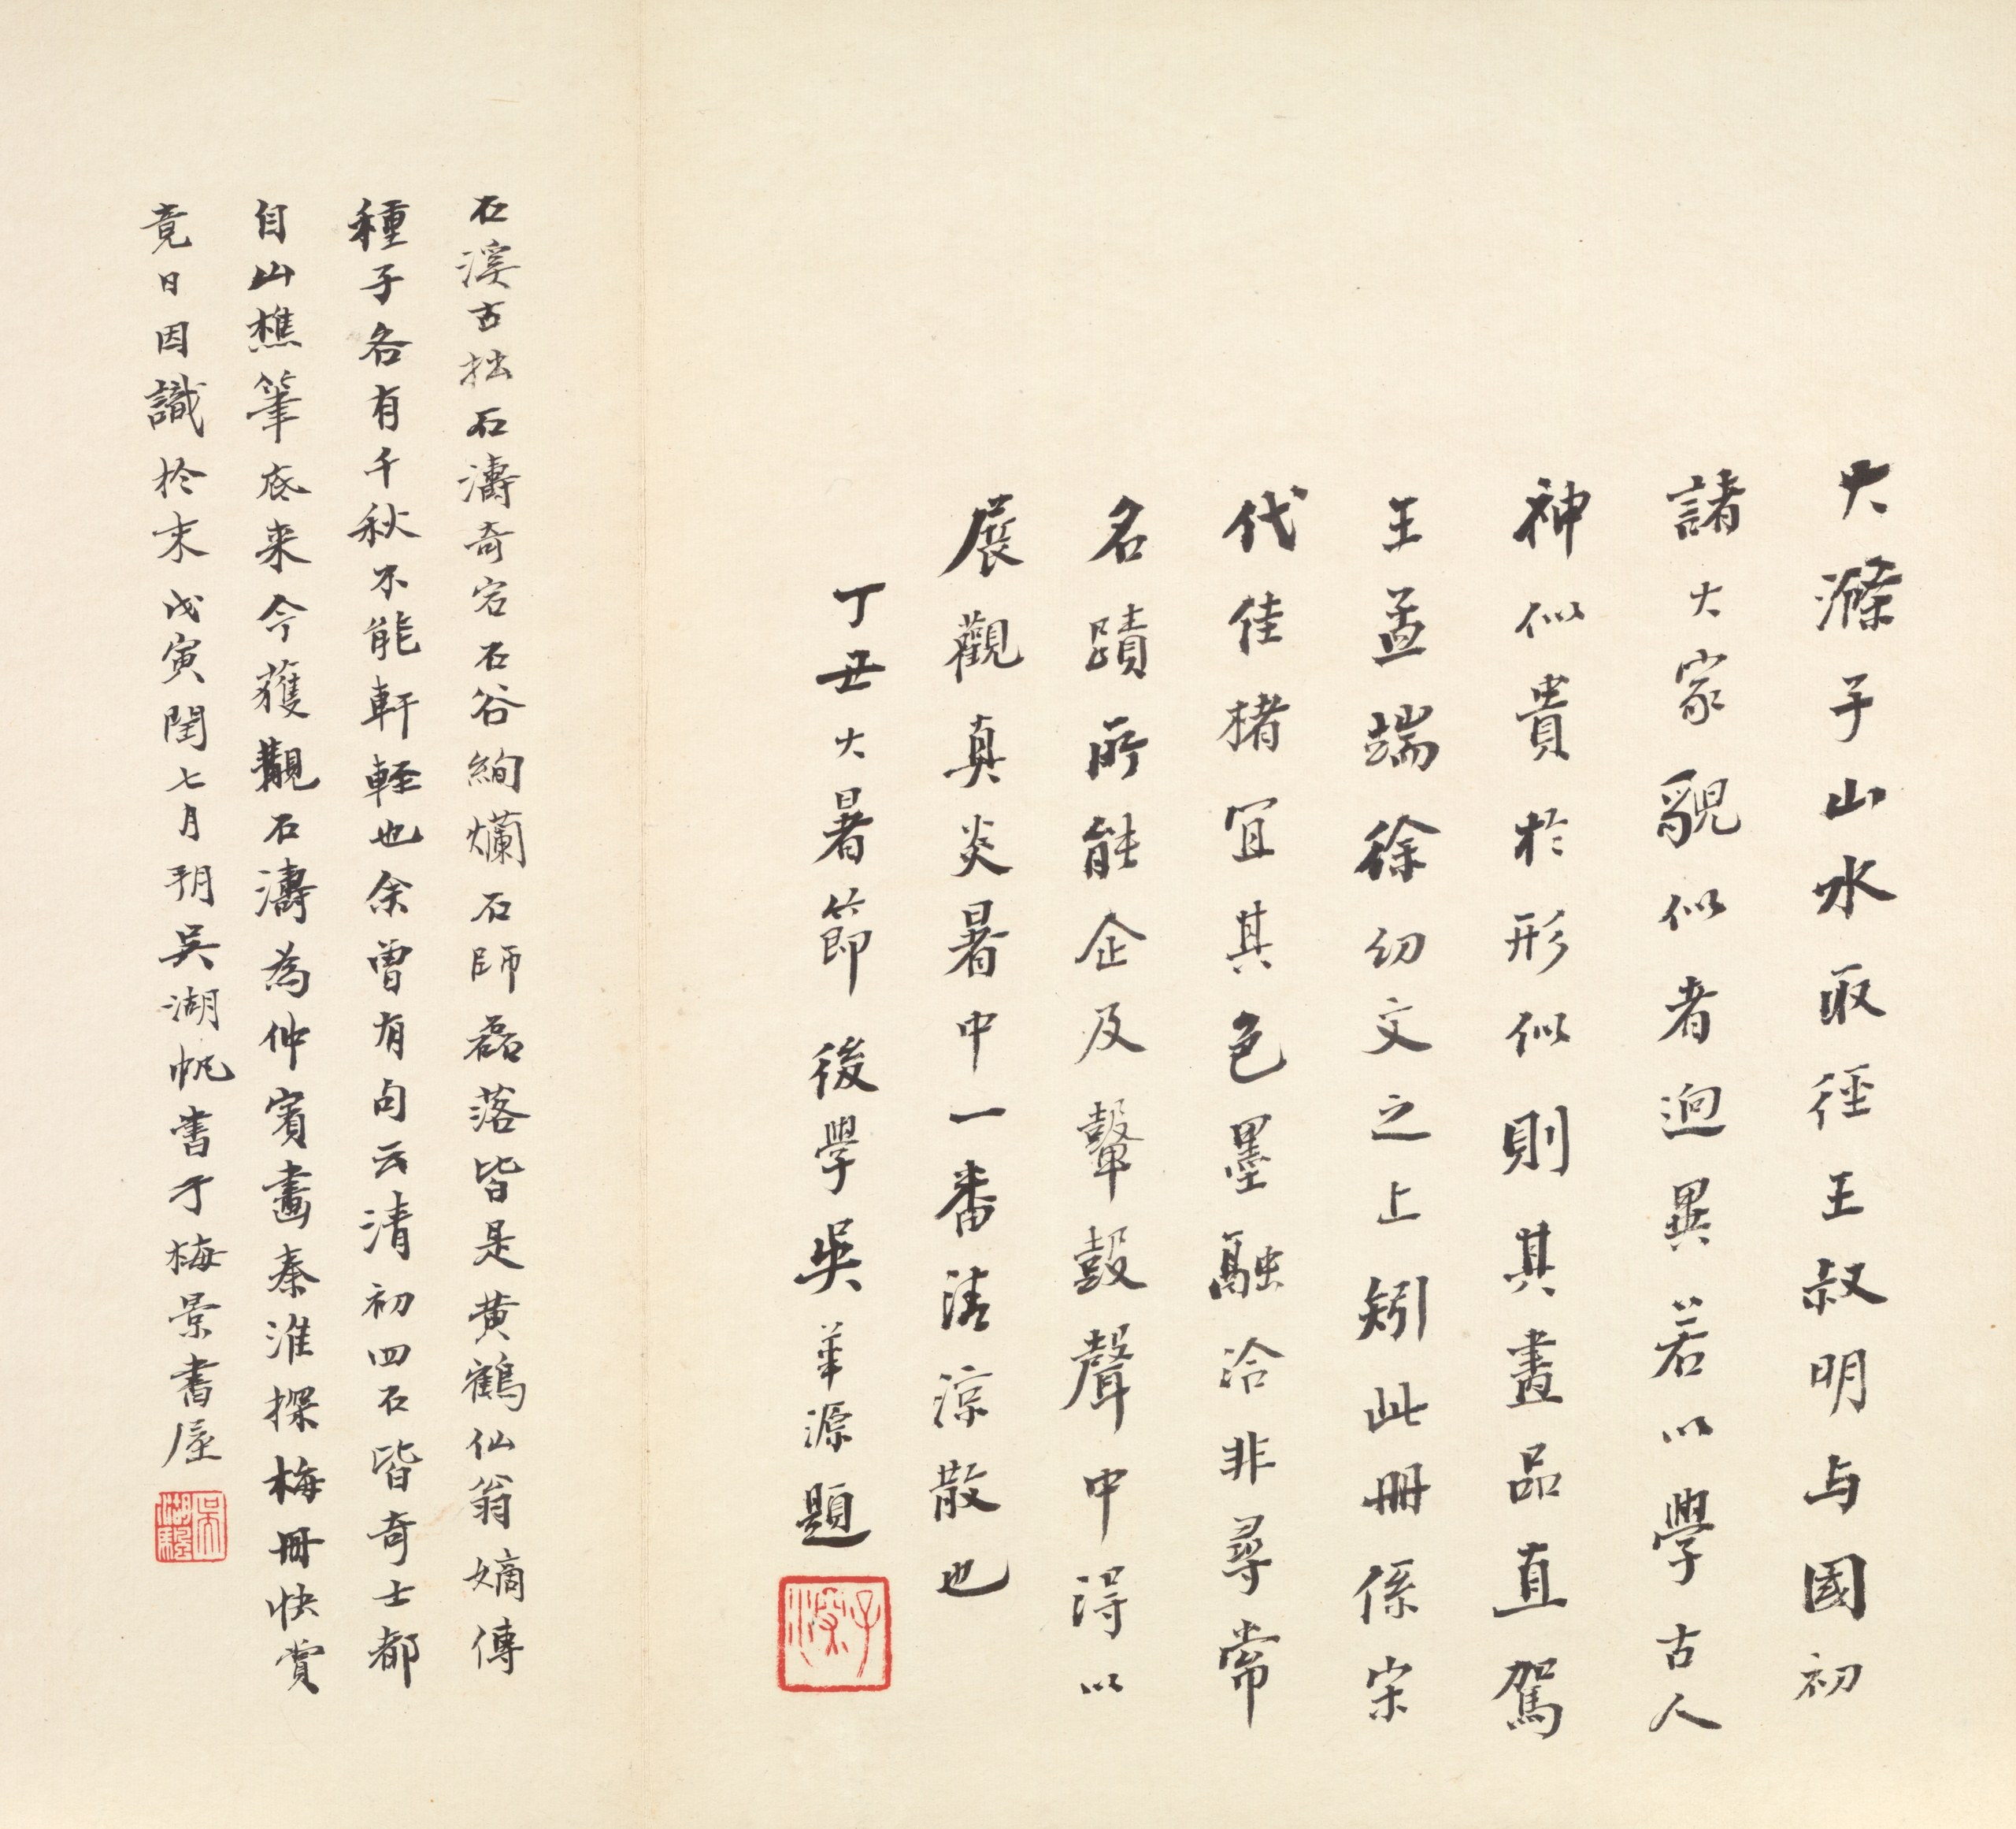 大滌子山水取徑王叔明与國初
諸大家貌似者迥異若以學古人
神似貴於形似則其畫品直駕
王孟端徐幼文之上矧此冊係宋
代佳楮宜其色墨融洽非尋常
名蹟所能企及鼙鼓聲中得以
展觀真炎暑中一番清涼散也
丁丑大暑節後學吳華源題
子深
石溪古拙石濤奇宕石谷絢爛石師磊落皆是黃鶴仙翁嫡傳
種子各有千秋不能軒輊也余曾有句云清初四石皆奇士都
自山樵筆底来今獲觀石濤為仲賓畫秦淮探梅冊快賞
竟日因識於末戊寅閏七月朔吳湖帆書于梅景書屋
吳湖帆